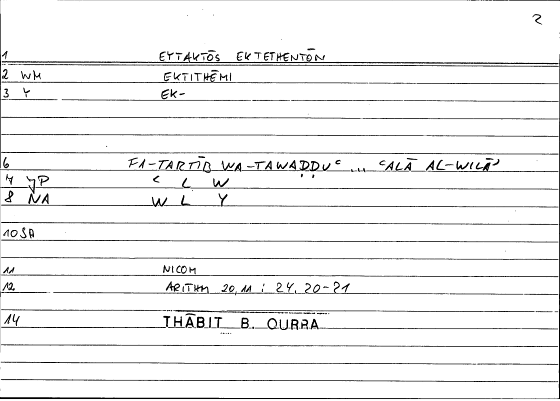 2
1 EYTAKTŌS EKTETHENTŌN
2 WM EKTITHĒMI
3 Y EK-
6 FA-TARTĪB WA-TAWAḌḌUʿ ... ʿALĀ AL-WILĀʾ
4 JP ʿ L W
8 NA W L Y
10 SA
11 NICOM
12 ARITHM 20,11 : 24,20-21
14 THĀBIT B. QURRA